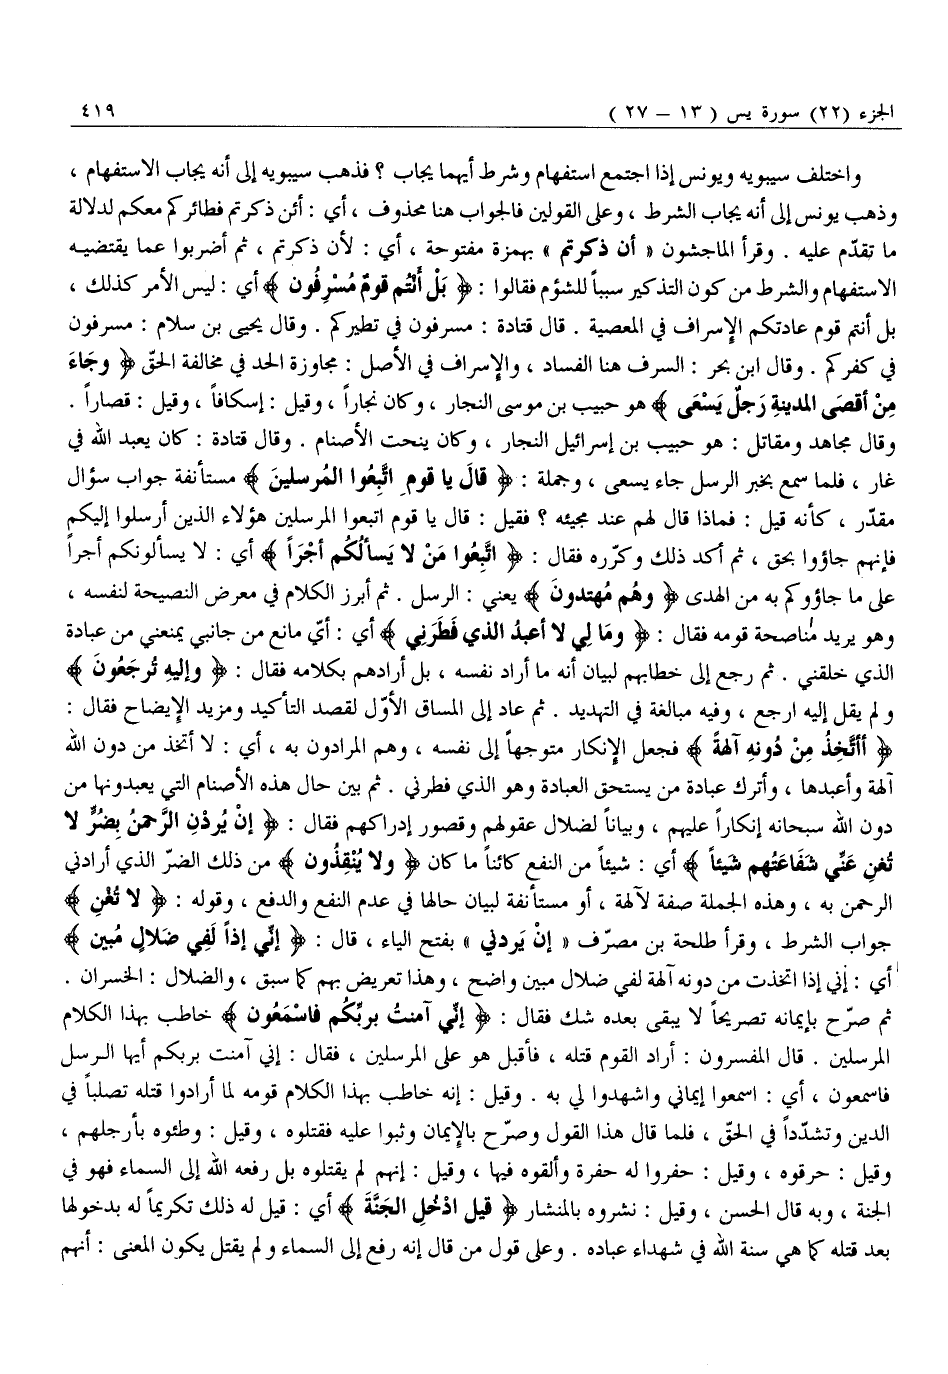 الجزء (٢٢) سورة يس ( ١٣ – ٢٧ ) ٤١٩
واختلف سيبويه ويونس إذا اجتمع استفهام وشرط أيهما يجاب ؟ فذهب سيبويه إلى أنه يجاب الاستفهام ،
وذهب يونس إلى أنه يجاب الشرط ، وعلى القولين فالجواب هنا محذوف ، أي : أئن ذكرتم فطائركم معكم لدلالة
ما تقدّم عليه . وقرأ الماجشون « أن ذكرتم » بهمزة مفتوحة ، أي : لأن ذكرتم ، ثم أضربوا عما يقتضيه
الاستفهام والشرط من كون التذكير سبباً للشؤم فقالوا : ﴿ بَلْ أَنْتُم قومٌ مُسْرِفُون ﴾ أي : ليس الأمر كذلك ،
بل أنتم قوم عادتكم الإسراف في المعصية . قال قتادة : مسرفون في تطيركم . وقال يحيى بن سلام : مسرفون
في كفركم . وقال ابن بحر : السرف هنا الفساد ، والإسراف في الأصل : مجاوزة الحد في مخالفة الحقّ ﴿ وجَاءَ
مِنْ أقصَى المدينةِ رَجلٌ يَسْعَى ﴾ هو حبيب بن موسى النجار ، وكان نجاراً ، وقيل : إسكافاً ، وقيل : قصاراً .
وقال مجاهد ومقاتل : هو حبيب بن إسرائيل النجار ، وكان ينحت الأصنام . وقال قتادة : كان يعبد الله في
غار ، فلما سمع بخبر الرسل جاء يسعى ، وجملة : ﴿ قالَ يا قومِ اتَّبِعُوا المُرسلينَ ﴾ مستأنفة جواب سؤال
مقدّر ، كأنه قيل : فماذا قال لهم عند مجيئه ؟ فقيل : قال يا قوم اتبعوا المرسلين هؤلاء الذين أرسلوا إليكم
فإنهم جاؤوا بحق ، ثم أكد ذلك وكرّره فقال : ﴿ اتَّبِعُوا مَنْ لا يَسألُكُم أجْرَاً ﴾ أي : لا يسألونكم أجراً
على ما جاؤوكم به من الهدى ﴿ وهُم مُهتدونَ ﴾ يعني : الرسل . ثم أبرز الكلام في معرض النصيحة لنفسه ،
وهو يريد مُناصحة قومه فقال : ﴿ ومَا لِي لا أعبدُ الذي فَطَرَنِي ﴾ أي : أيّ مانع من جانبي يمنعني من عبادة
الذي خلقني . ثم رجع إلى خطابهم لبيان أنه ما أراد نفسه ، بل أرادهم بكلامه فقال : ﴿ وإليهِ تُرجَعُونَ ﴾
ولم يقل إليه ارجع ، وفيه مبالغة في التهديد . ثم عاد إلى المساق الأوّل لقصد التأكيد ومزيد الإيضاح فقال :
﴿ أأتَّخِذُ مِنْ دُونهِ آلهةً ﴾ فجعل الإنكار متوجهاً إلى نفسه ، وهم المرادون به ، أي : لا أتخذ من دون الله
آلهة وأعبدها ، وأترك عبادة من يستحق العبادة وهو الذي فطرني . ثم بين حال هذه الأصنام التي يعبدونها من
دون الله سبحانه إنكاراً عليهم ، وبياناً لضلال عقولهم وقصور إدراكهم فقال : ﴿ إنْ يُردْنِ الرَّحمنُ بِضُرٍّ لا
تُغنِ عَنِّي شَفَاعَتُهم شَيئاً ﴾ أي : شيئاً من النفع كائناً ما كان ﴿ ولا يُنْقِذُون ﴾ من ذلك الضرّ الذي أرادني
الرحمن به ، وهذه الجملة صفة لآلهة ، أو مستأنفة لبيان حالها في عدم النفع والدفع ، وقوله : ﴿ لا تُغْنِ ﴾
جواب الشرط ، وقرأ طلحة بن مصرّف « إنْ يَردني » بفتح الياء ، قال : ﴿ إنّي إذاً لَفِي ضَلالٍ مُبين ﴾
أي : إني إذا اتخذت من دونه آلهة لفي ضلال مبين واضح ، وهذا تعريض بهم كما سبق ، والضلال : الخسران .
ثم صرّح بإيمانه تصريحاً لا يبقى بعده شك فقال : ﴿ إنّي آمنتُ بربِّكُم فاسْمَعُون ﴾ خاطب بهذا الكلام
المرسلين . قال المفسرون : أراد القوم قتله ، فأقبل هو على المرسلين ، فقال : إني آمنت بربكم أيها الرسل
فاسمعون ، أي : اسمعوا إيماني واشهدوا لي به . وقيل : إنه خاطب بهذا الكلام قومه لما أرادوا قتله تصلباً في
الدين وتشدّداً في الحقّ ، فلما قال هذا القول وصرّح بالإيمان وثبوا عليه فقتلوه ، وقيل : وطئوه بأرجلهم ،
وقيل : حرقوه ، وقيل : حفروا له حفرة وألقوه فيها ، وقيل : إنهم لم يقتلوه بل رفعه الله إلى السماء فهو في
الجنة ، وبه قال الحسن ، وقيل : نشروه بالمنشار ﴿ قيل ادْخُلِ الجَنَّةَ ﴾ أي : قيل له ذلك تكريماً له بدخولها
بعد قتله كما هي سنة الله في شهداء عباده . وعلى قول من قال إنه رفع إلى السماء ولم يقتل يكون المعنى : أنهم